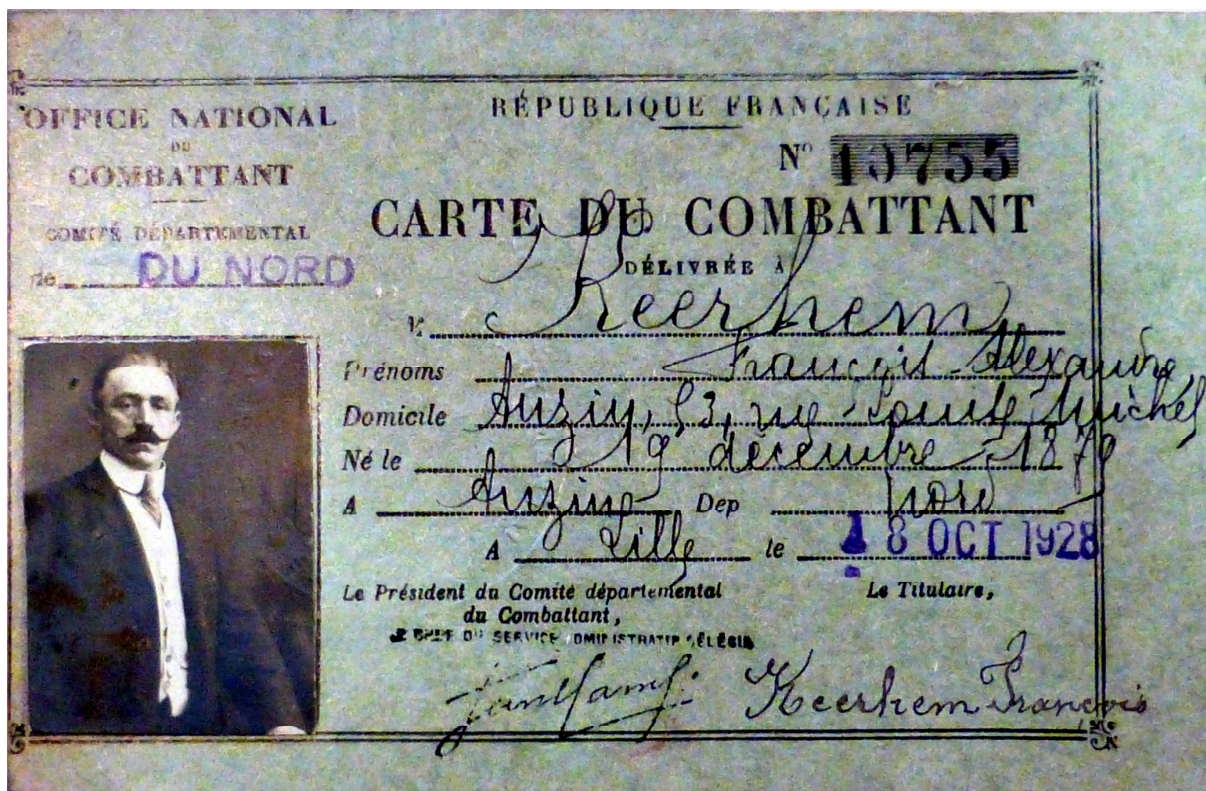 OFFICE NATIONAL
DU
COMBATTANT
COMITÉ DÉPARTEMENTAL
de DU NORD
RÉPUBLIQUE FRANÇAISE
N° 10755
CARTE DU COMBATTANT
DÉLIVRÉE À
M. Keerhem
Prénoms François Alexandre
Domicile Anzin, 53, rue Michel
Né le 19 décembre 1879
A Anzin Dep Nord
A Lille le 18 OCT 1928
Le Président du Comité départemental
du Combattant,
LE CHEF DU SERVICE ADMINISTRATIF DÉLÉGUÉ
Le Titulaire,
Keerhem François